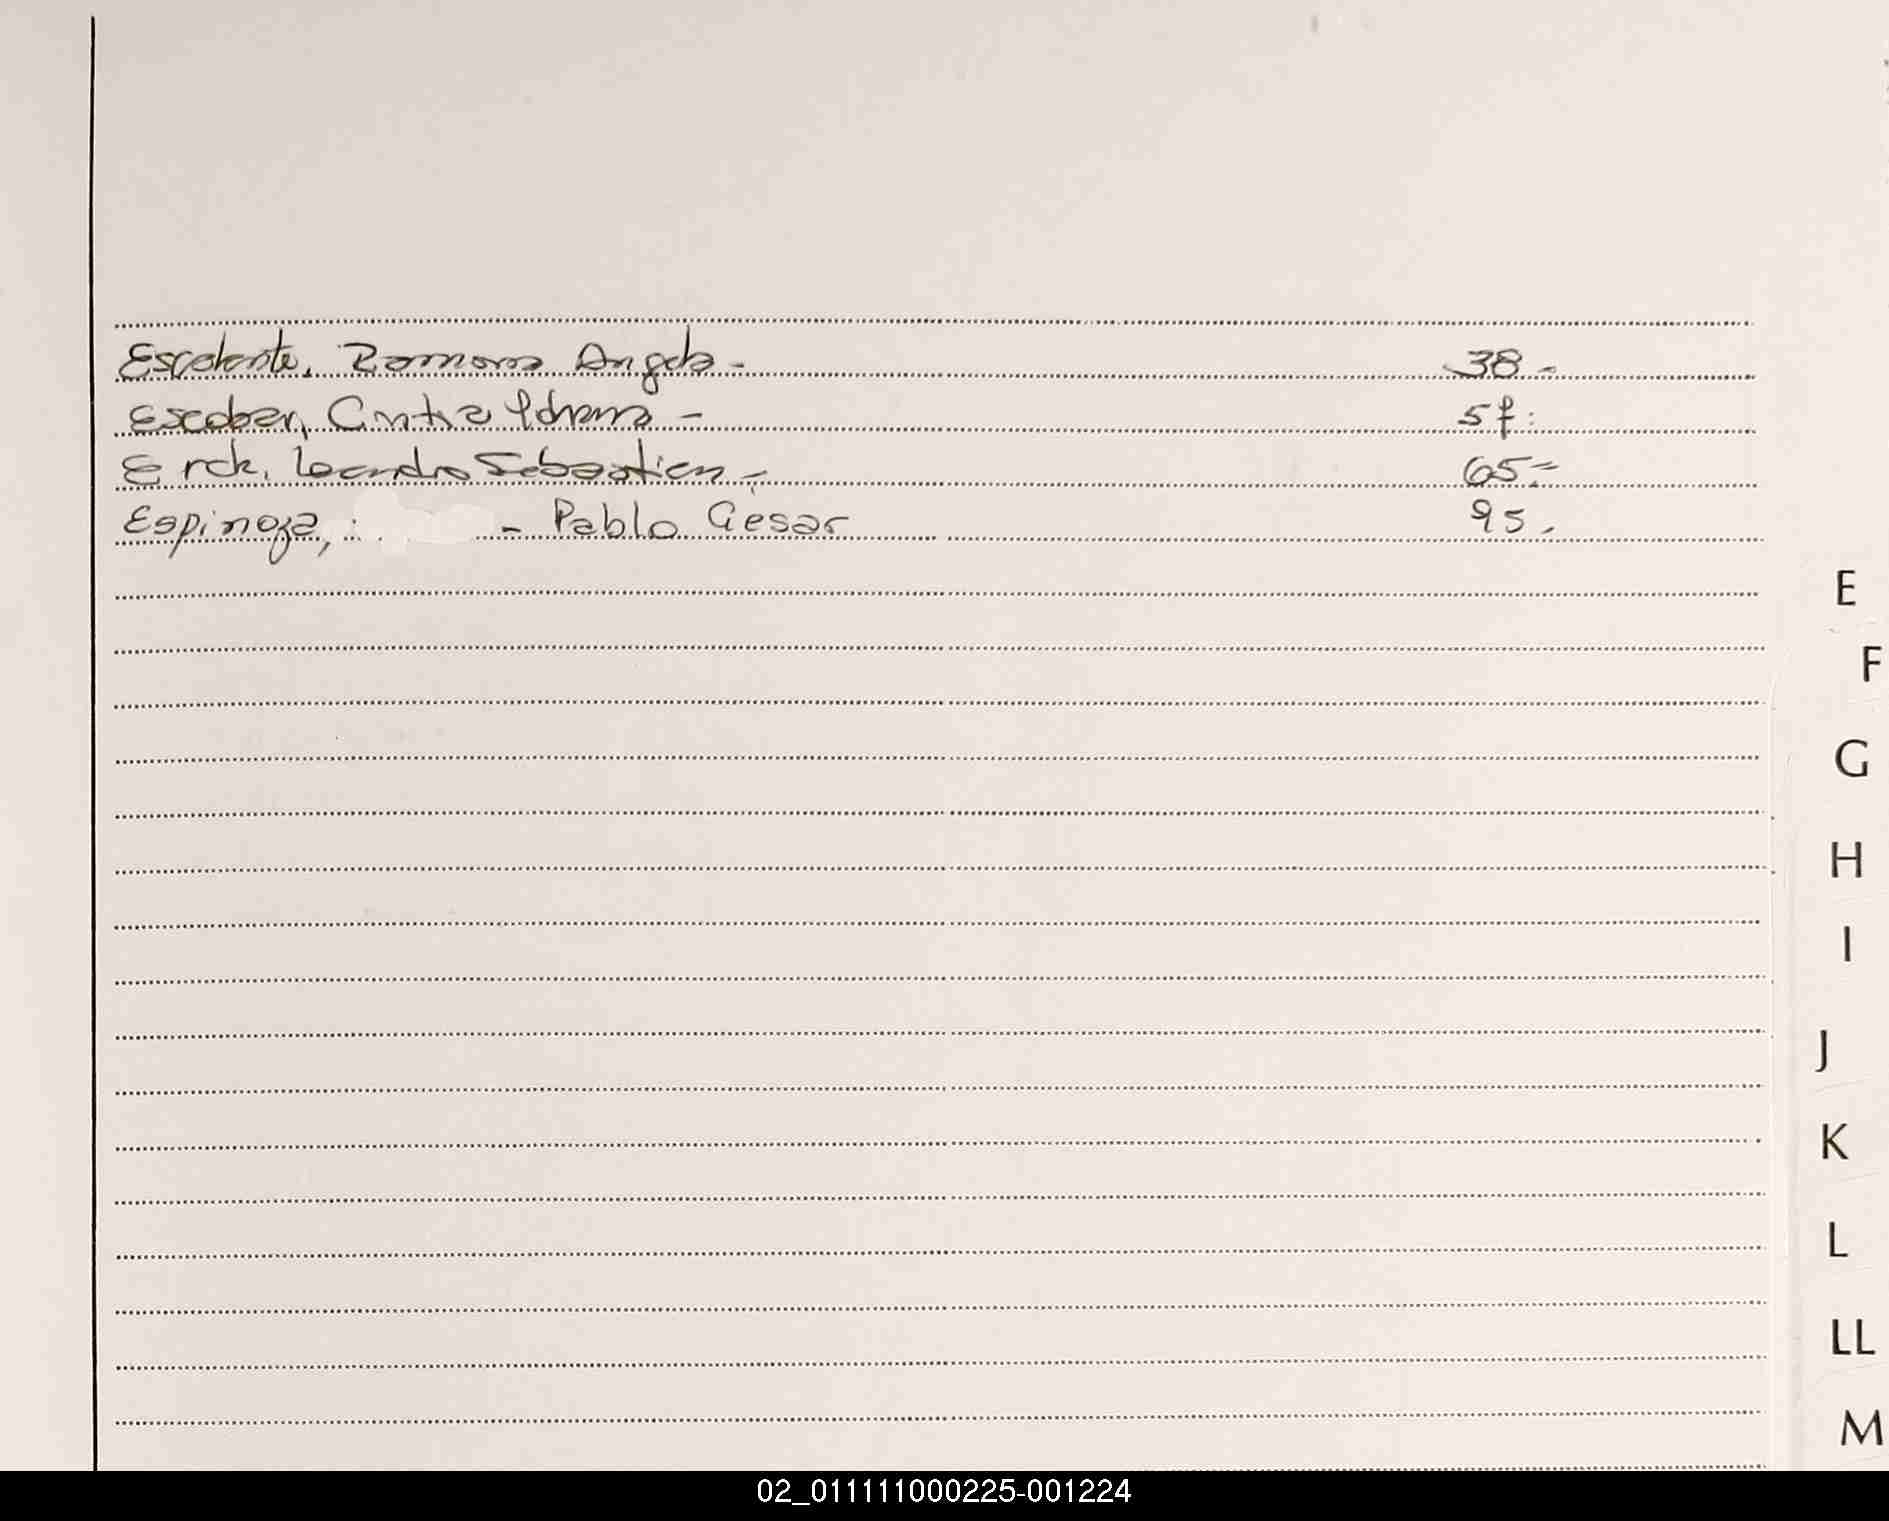 Escalante, Ramona Angela - 38 -
Escobar, Cintia Ydrana - 57 :
Erck, Leandro Sebastien - 65 =
Espinoza, - Pablo Cesar 95 .
E
F
G
H
I
J
K
L
LL
M
02_011111000225-001224